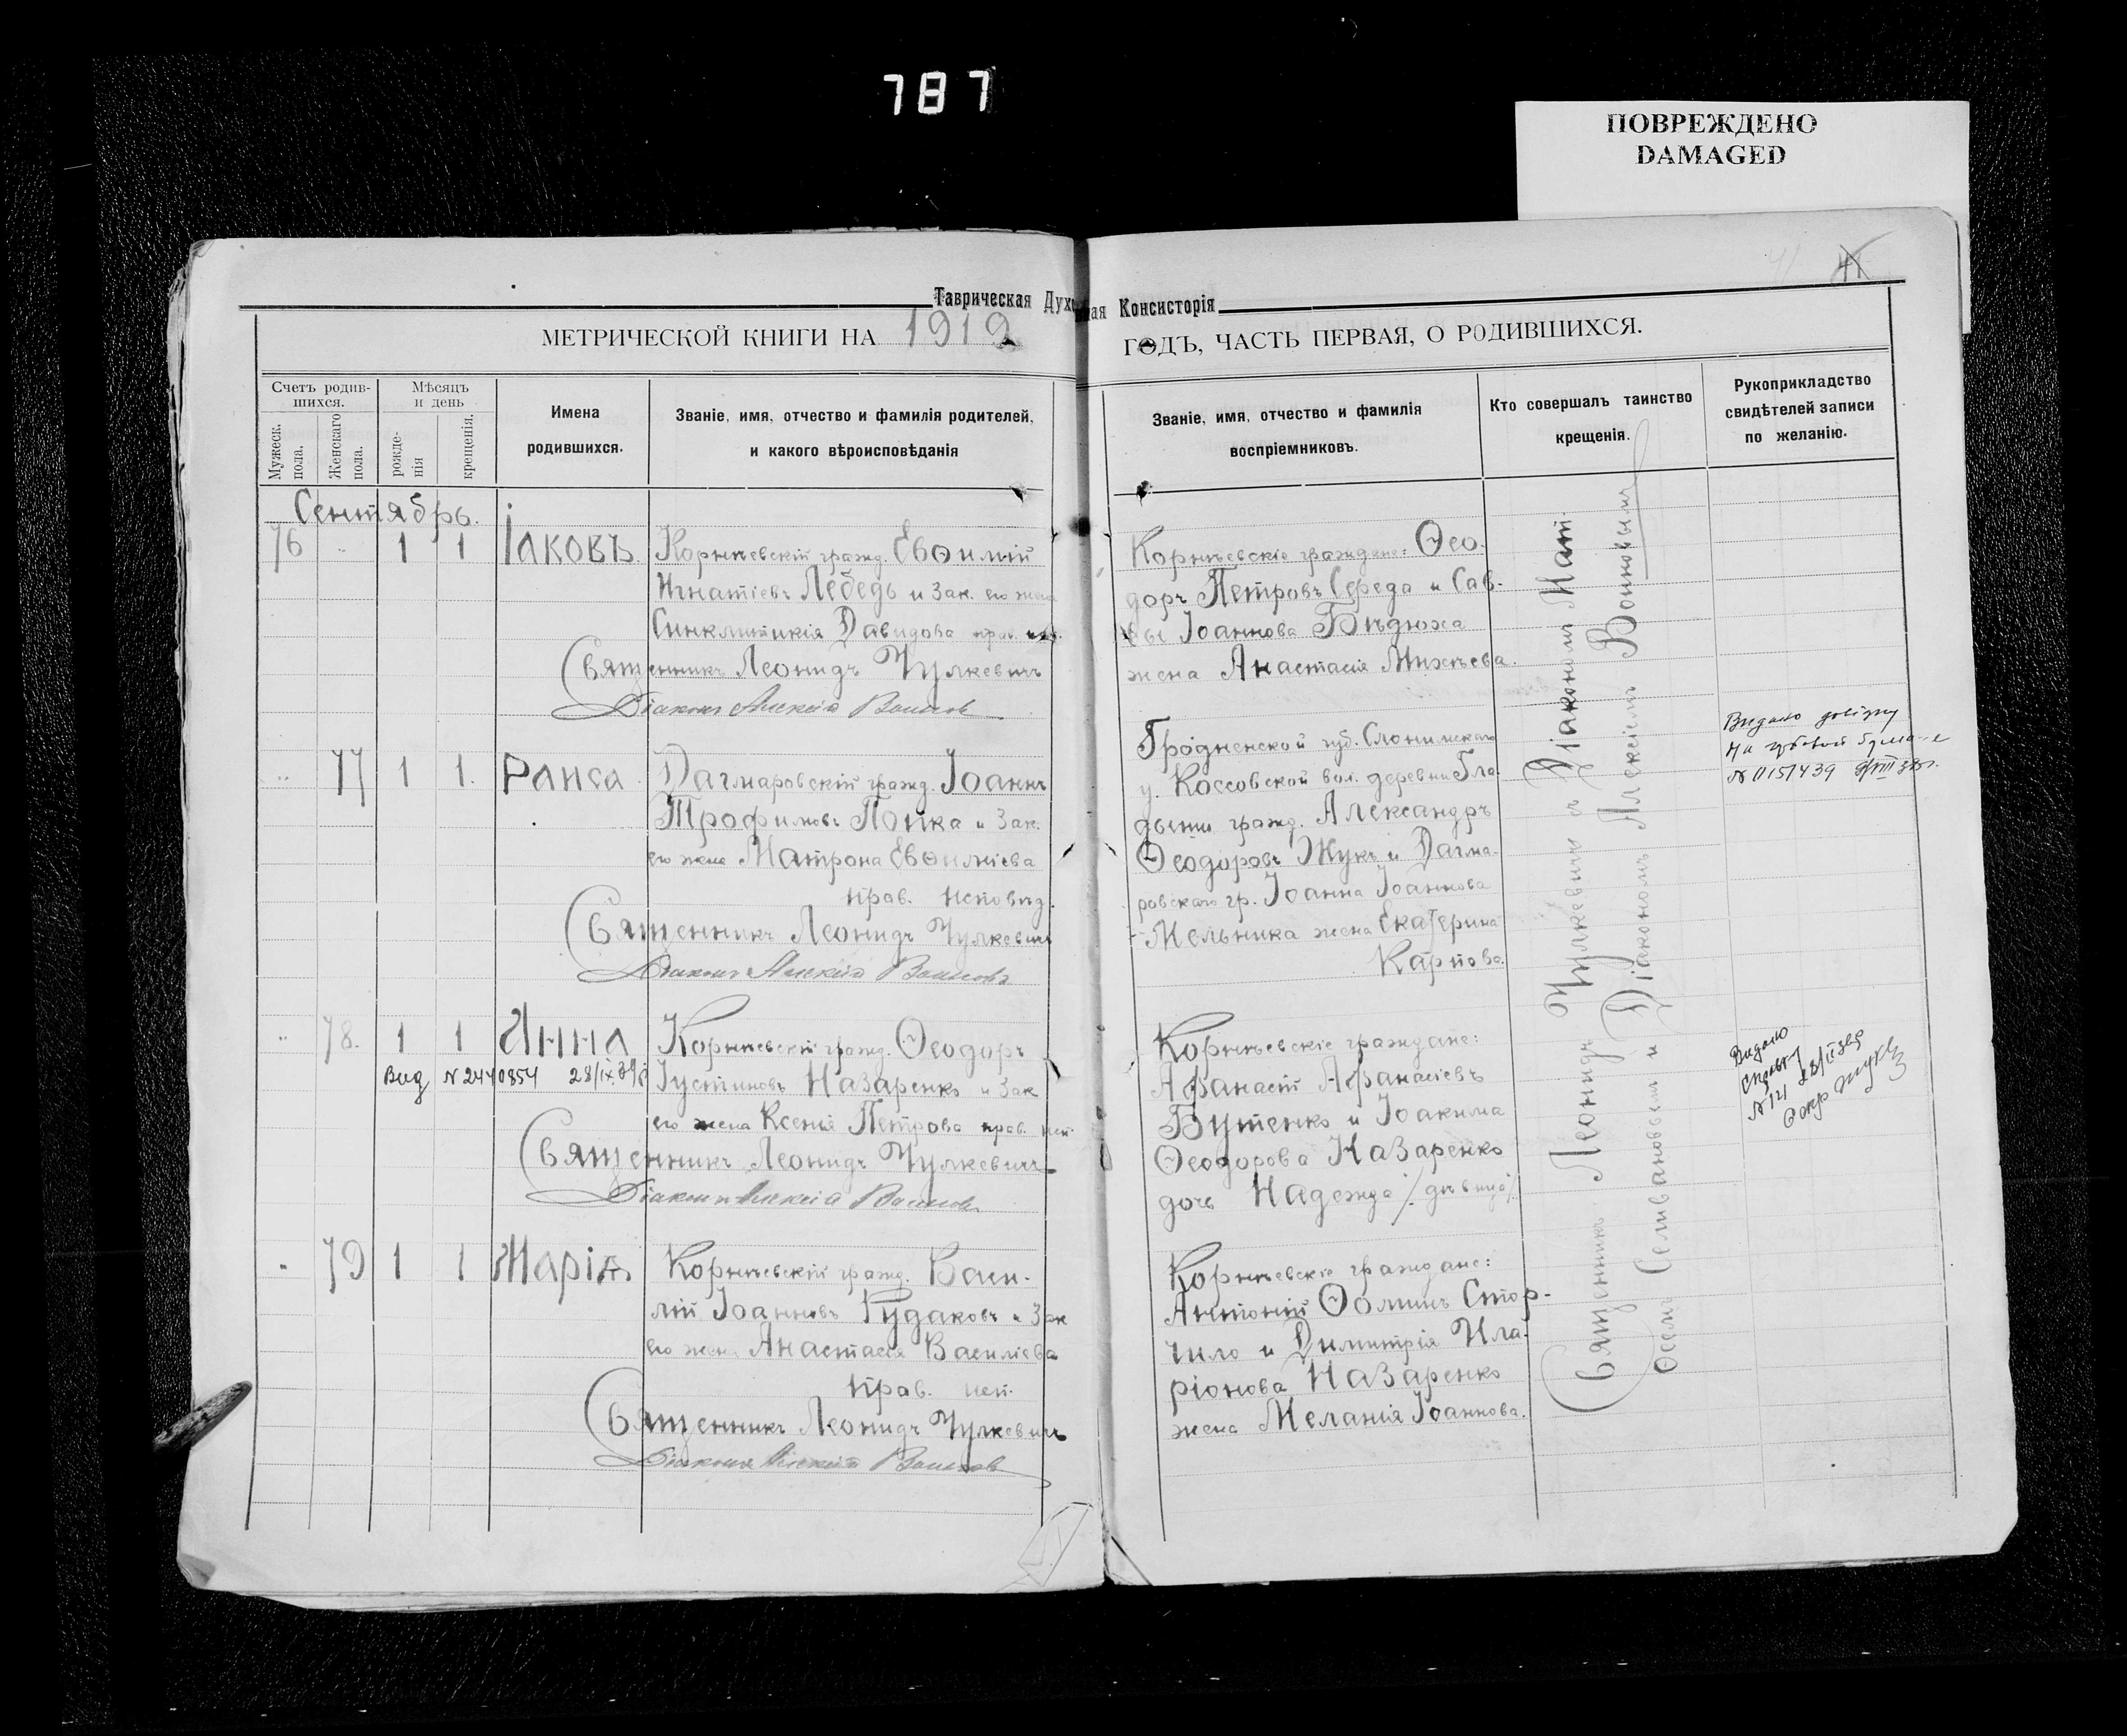 787
ПОВРЕЖДЕНО
DAMAGED
41
Таврическая Духовная Консисторія
МЕТРИЧЕСКОЙ КНИГИ НА 1919
ГОДЪ, ЧАСТЬ ПЕРВАЯ, О РОДИВШИХСЯ.
Счетъ родив-
шихся.
Мужеск.
пола.
Женскаго
пола.
Мѣсяцъ
и день
рожде-
нія
крещенія.
Имена
родившихся.
Званіе, имя, отчество и фамилія родителей,
и какого вѣроисповѣданія
Званіе, имя, отчество и фамилія
воспріемниковъ.
Кто совершалъ таинство
крещенія.
Рукоприкладство
свидѣтелей записи
по желанію.
Сентябрь.
76 1 1 Іаковъ. Корнѣевскій гражд. Евѳимій
Игнатіевъ Лебедь и зак. его жена
Синклитикія Давидова прав.
Священникъ Леонидъ Чулкевичъ
Діаконъ Алексій Воинов
Корнѣевскіе граждане: Ѳео-
доръ Петровъ Середа и Сав-
вы Іоаннова Бѣдюха
жена Анастасія Михѣева.
77 1 1. Раиса Дагмаровскій гражд. Іоаннъ
Трофимовъ Попка и зак.
его жена Матрона Евѳиміева
прав. исповѣд.
Священникъ Леонидъ Чулкевичъ
Діаконъ Алексій Воиновъ
Гродненской губ. Слонимскаго
у. Коссовской вол. деревни Гла-
дыши гражд. Александръ
Ѳеодоровъ Жукъ и Дагма-
ровскаго гр. Іоанна Іоаннова
Мельника жена Екатерина
Карпова.
Видано довідку
на гербовой бумаге
№ 0151439 9/VIII 38г.
78. 1 1 Анна Корнѣевскій гражд. Ѳеодоръ
Вид № 2440854 28/IX 39
Іустиновъ Назаренко и зак
его жена Ксенія Петрова прав. исп
Священникъ Леонидъ Чулкевичъ
Діаконъ Алексій Воинов
Корнѣевскіе граждане:
Афанасій Афанасіевъ
Бутенко и Іоакима
Ѳеодорова Назаренко
дочь Надежда /дѣвица/.
Видано
№ 121 28/II 38г
79 1 1 Марія Корнѣевскій гражд. Васи-
лій Іоанновъ Рудаковъ и зак
его жена Анастасія Василіева
прав. исп.
Священникъ Леонидъ Чулкевичъ
Діаконъ Алексій Воинов
Корнѣевскіе граждане:
Антоній Ѳоминъ Стор-
чило и Димитрія Ила-
ріонова Назаренко
жена Меланія Іоаннова.
Священникъ Леонидъ Чулкевичъ съ Діакономъ Мат-
ѳеемъ Селивановымъ и Діакономъ Алексіемъ Воиновымъ